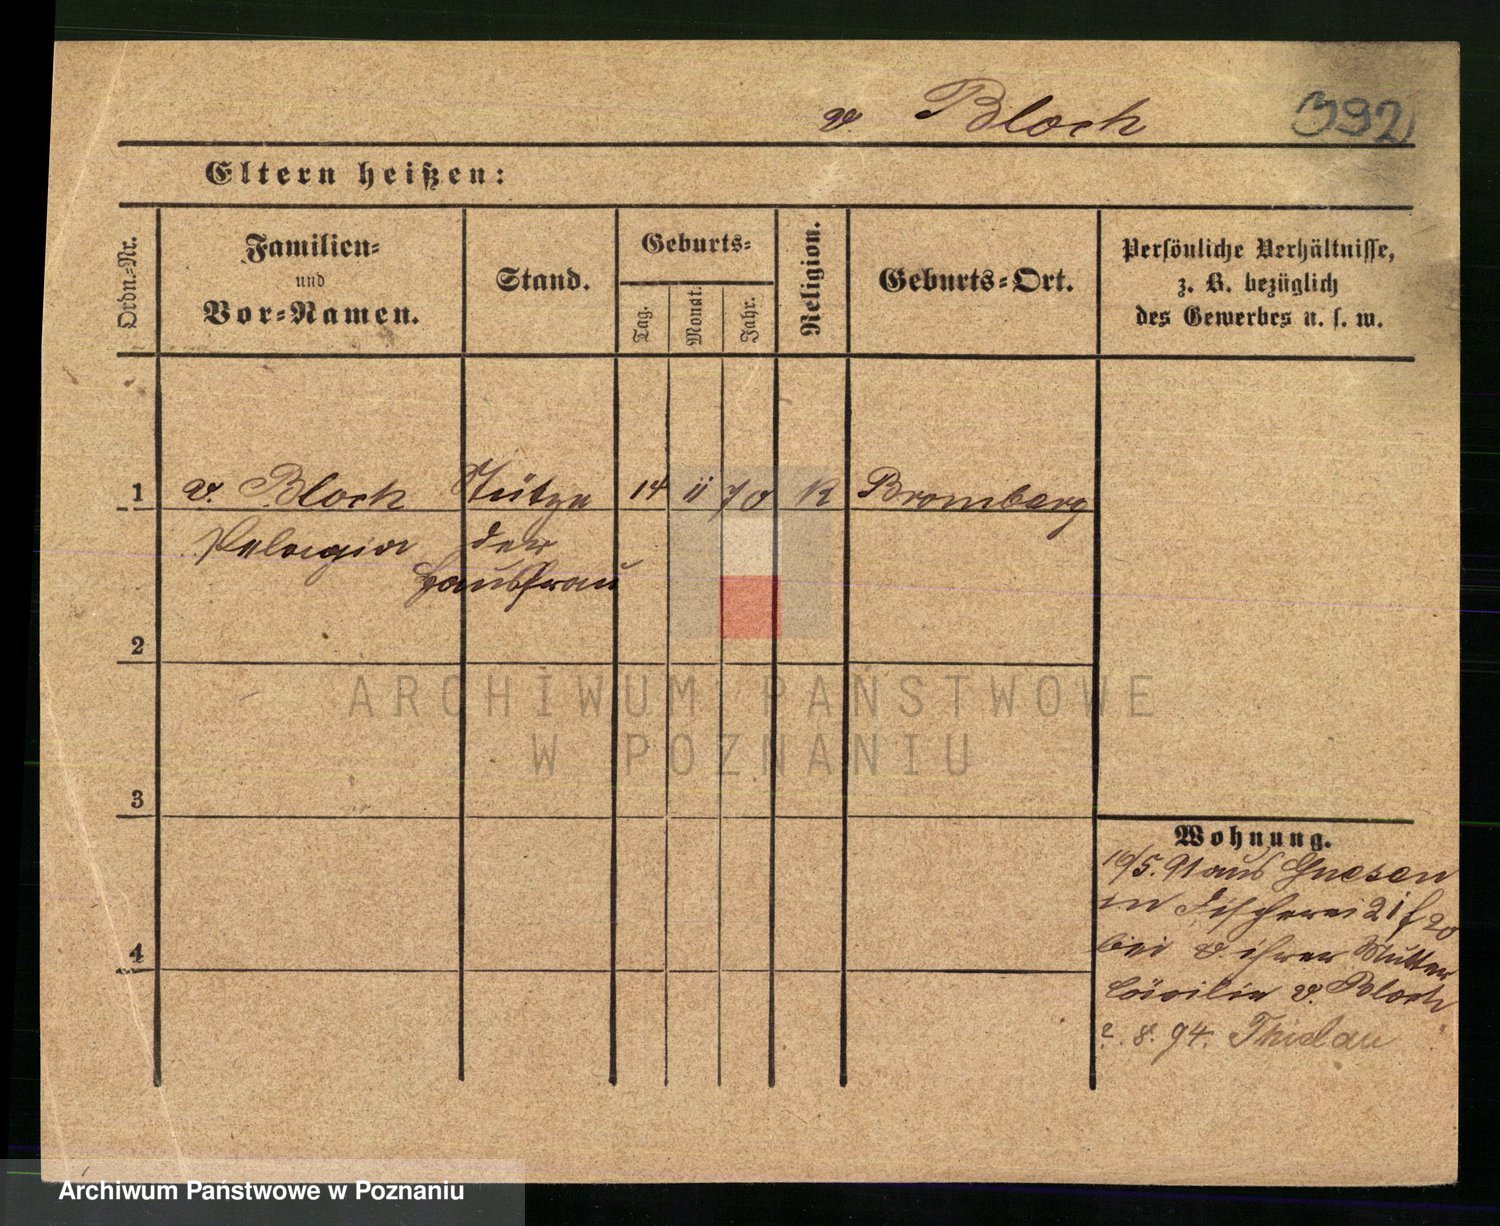 v. Bloch 392
Eltern heißen:
Ordn.-Nr.
Familien-
und
Vor-Namen.
Stand.
Geburts-
Tag.
Monat.
Jahr.
Religion.
Geburts-Ort.
Persönliche Verhältnisse,
z. B. bezüglich
des Gewerbes u. s. w.
1 v. Bloch Stütze 14 11 70 K Bromberg
Pelagia der
Hausfrau
2
3
4
Wohnung.
16/5. 91 aus Gnesen
in Fischerei 21 f 20
bei ihrer Mutter
Cäcilie v. Bloch
2. 8. 94. Thielau
ARCHIWUM PAŃSTWOWE
W POZNANIU
Archiwum Państwowe w Poznaniu